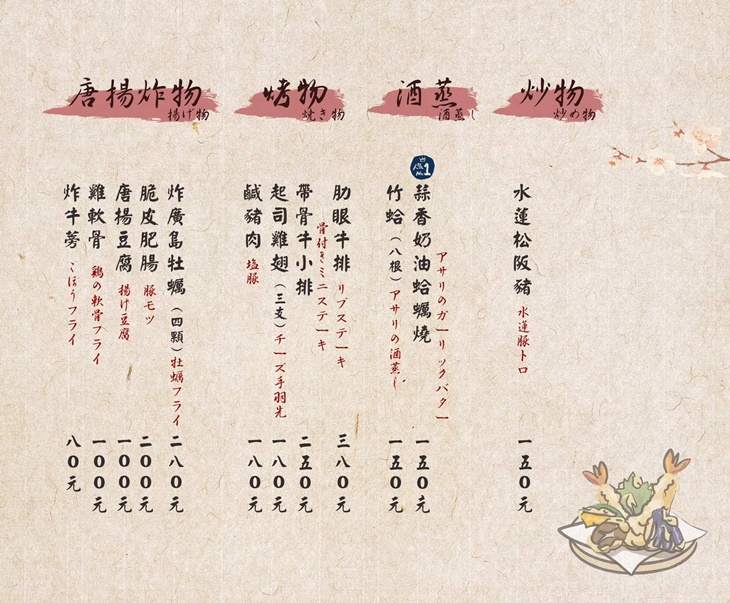 炒物
炒め物
水蓮松阪豬 水蓮豚トロ 一五0元
酒蒸
酒蒸し
人気
No.1
蒜香奶油蛤蠣燒 アサリのガーリックバター 一五0元
竹蛤（八根）アサリの酒蒸し 一五0元
烤物
焼き物
肋眼牛排 リブステーキ 三八0元
帶骨牛小排 骨付きミニステーキ 二五0元
起司雞翅（三支）チーズ手羽先 一八0元
鹹豬肉 塩豚 一八0元
唐揚炸物
揚げ物
炸廣島牡蠣（四顆）牡蠣フライ 二八0元
脆皮肥腸 豚モツ 二00元
唐揚豆腐 揚げ豆腐 一00元
雞軟骨 鶏の軟骨フライ 一00元
炸牛蒡 ごぼうフライ 八0元